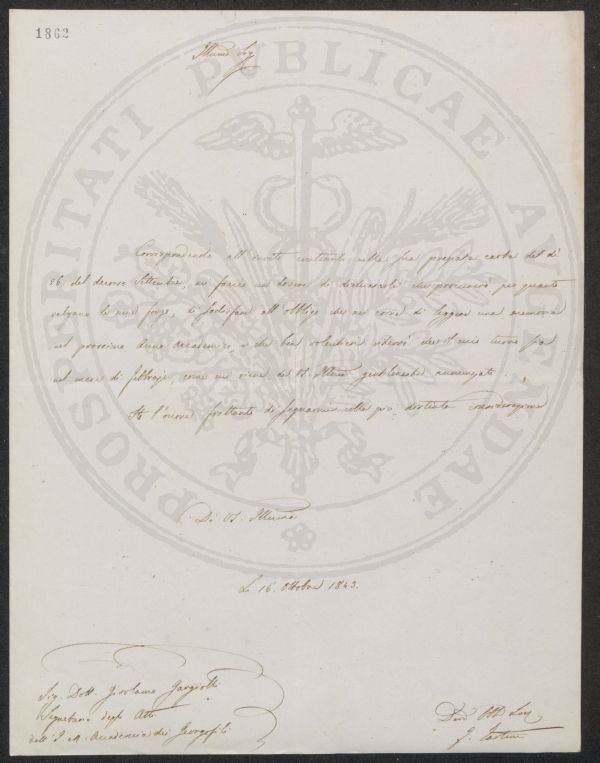 1862
Illmo Sig.
PROSPERITATI PUBLICAE AUGENDAE
Corrispondendo all' invito contenuto nella sua pregiata carta del dì
26. del decorso Settembre, mi faccio un dovere di che procurerò per quanto
valgano le mie forze, di sodisfare all' obbligo che mi corre di leggere una memoria
nel prossimo anno accademico, e che ben volentieri il mio turno sia
nel mese di febbrajo, come mi viene da VS. Illma annunziato.
Ho l'onore frattanto di segnarmi colla più distinta considerazione
Di VS. Illma
Li 16. Ottobre 1843.
Sig. Dott. Girolamo
Segretario degli Atti
dell' I. e R. Accademia dei Georgofili
Dev